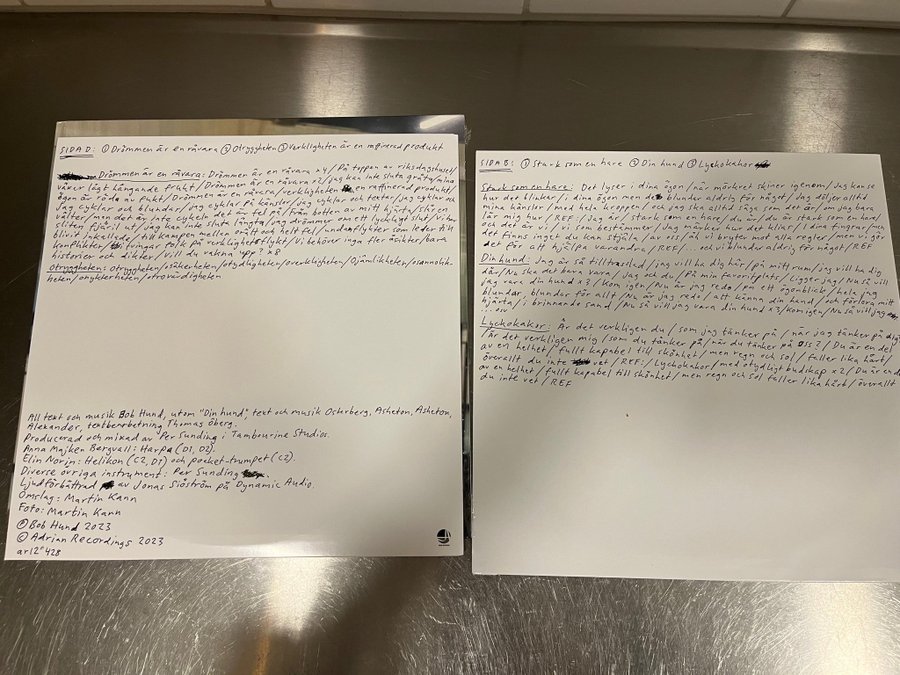 SIDA D: ① Drömmen är en råvara ② Otryggheten ③ Verkligheten är en raffinerad produkt
Drömmen är en råvara: Drömmen är en råvara x4 / På toppen av riksdagshuset /
växer lågt hängande frukt / Drömmen är en råvara x2 / jag kan inte sluta gråta / mina
ögon är röda av fukt / Drömmen är en råvara / verkligheten en raffinerad produkt /
Jag cyklar och blundar / jag cyklar på känslor / jag cyklar och testar / jag cyklar och
välter / men det är inte cykeln det är fel på / från botten av mitt hjärta / slå en
sliten fjäril ut / jag kan inte sluta längta / drömmer om ett lyckligt slut / Vi har
blivit inkallade / till kampen mellan orätt och helt fel / undanflykter som leder till
konflikter / tvingar folk på verklighetsflykt / Vi behöver inga fler åsikter / bara
historier och dikter / Vill du vakna upp? x8
Otryggheten: Otryggheten / osäkerheten / otydligheten / overkligheten / Ojämlikheten / osannolik-
heten / onykterheten / otrovärdigheten
All text och musik Bob Hund, utom "Din hund", text och musik Ockerberg, Asheton, Asheton,
Alexander, textbearbetning Thomas Öberg.
Producerad och mixad av Per Sunding i Tambourine Studios.
Anna Majken Bergvall: Harpa (D1, D2).
Elin Norin: Helikon (C2, D1) och pocket-trumpet (C2).
Diverse övriga instrument: Per Sunding.
Ljudförbättrad av Jonas Siöström på Dynamic Audio.
Omslag: Martin Kann
Foto: Martin Kann
Ⓟ Bob Hund 2023
© Adrian Recordings 2023
ar12"428
SIDA B: ① Stark som en hare ② Din hund ③ Lyckokakor
Stark som en hare: Det lyser i dina ögon / när mörkret skiner igenom / Jag kan se
hur det blinkar / i dina ögon men de blundar aldrig för något / Jag döljer alltid
mina känslor / med hela kroppen / och jag ska alltid säga som det är / om jag bara
lär mig hur / REF: / Jag är / stark som en hare / du är / du är stark som en hare /
och det är vi / vi som bestämmer / Jag märker hur det kliar / I dra fingrar / men
det finns inget du kan stjäla / av oss / åh vi bryter mot alla regler / men vi gör
det för att hjälpa varandra / REF / ... och vi blundar aldrig för något / REF
Din hund: Jag är så tilltrasslad / jag vill ha dig här / på mitt rum / jag vill ha dig
där / Nu ska det bara vara / Jag och du / På min favoritplats / Ligger jag / Nu så vill
jag vara din hund x3 / Kom igen / Nu är jag redo / på ett ögonblick / hela jag
blundar, blundar för allt / Nu är jag redo / att känna din hand / och förlora mitt
hjärta / i brinnande sand / Nu så vill jag vara din hund x3 / Kom igen / Nu så vill jag
... osv
Lyckokakor: Är det verkligen du / som jag tänker på / när jag tänker på dig
/ Är det verkligen mig / som du tänker på / när du tänker på oss? / Du är en del
av en helhet / fullt kapabel till skönhet / men regn och sol / faller lika hårt /
överallt du inte vet / REF: / Lyckokakor / med otydligt budskap x2 / Du är en del
av en helhet / fullt kapabel till skönhet / men regn och sol faller lika hårt / överallt
du inte vet / REF